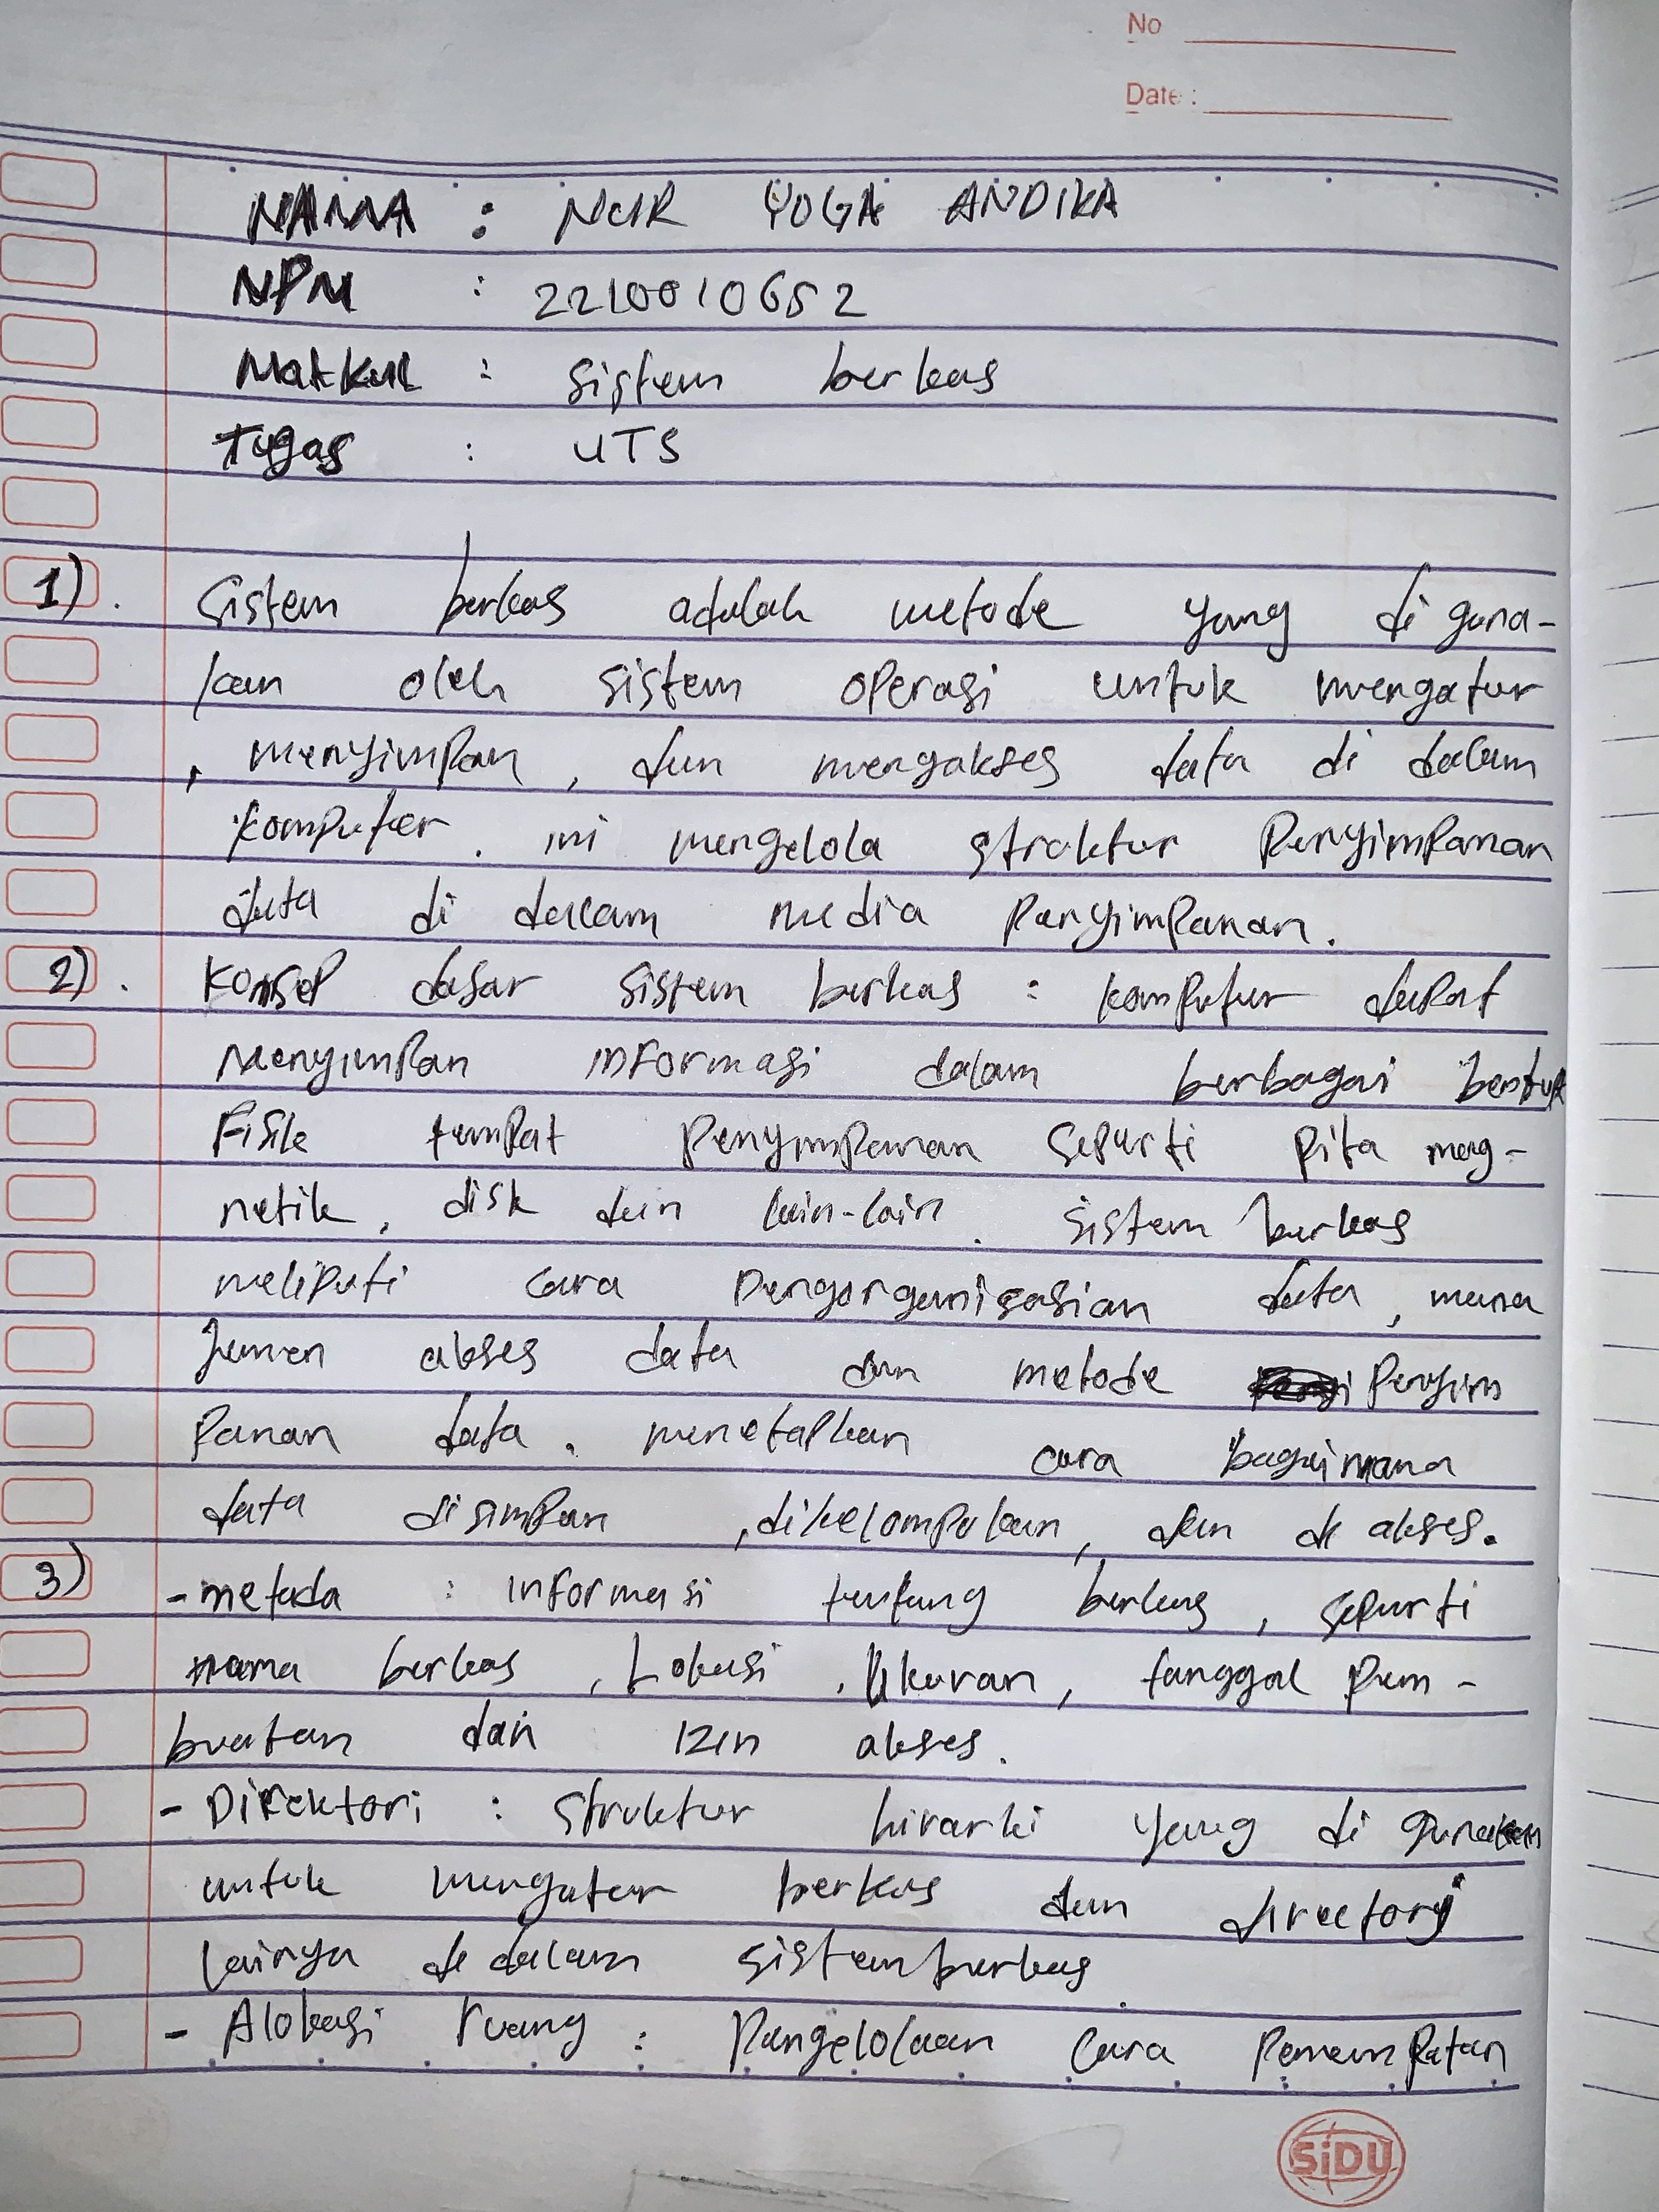 No
Date :
NAMA : NUR YOGA ANDIKA
NPM : 2210010652
Matkul : sistem berkas
Tugas : UTS
1). Sistem berkas adalah metode yang di guna-
kan oleh sistem operasi untuk mengatur
, menyimpan, dan mengakses data di dalam
komputer. ini mengelola struktur Penyimpanan
data di dalam media Penyimpanan.
2). Konsep dasar sistem berkas : komputer dapat
Menyimpan informasi dalam berbagai bentuk
Fisik tempat Penyimpanan seperti Pita mag-
netik, disk dan lain-lain. sistem berkas
meliputi cara Pengorganisasian data, mana
jemen akses data dan metode Penyim
Panan data. menetapkan cara bagaimana
data disimpan, dikelompokan, dan di akses.
3) - metada : informasi tentang berkas, seperti
nama berkas, Lokasi, Ukuran, tanggal Pem-
buatan dan izin akses.
- Direktori : struktur hirarki yang di gunakan
untuk mengatur berkas dan directory
lainya di dalam sistem berkas.
- Alokasi ruang : Pengelolaan cara Penempatan
SiDU